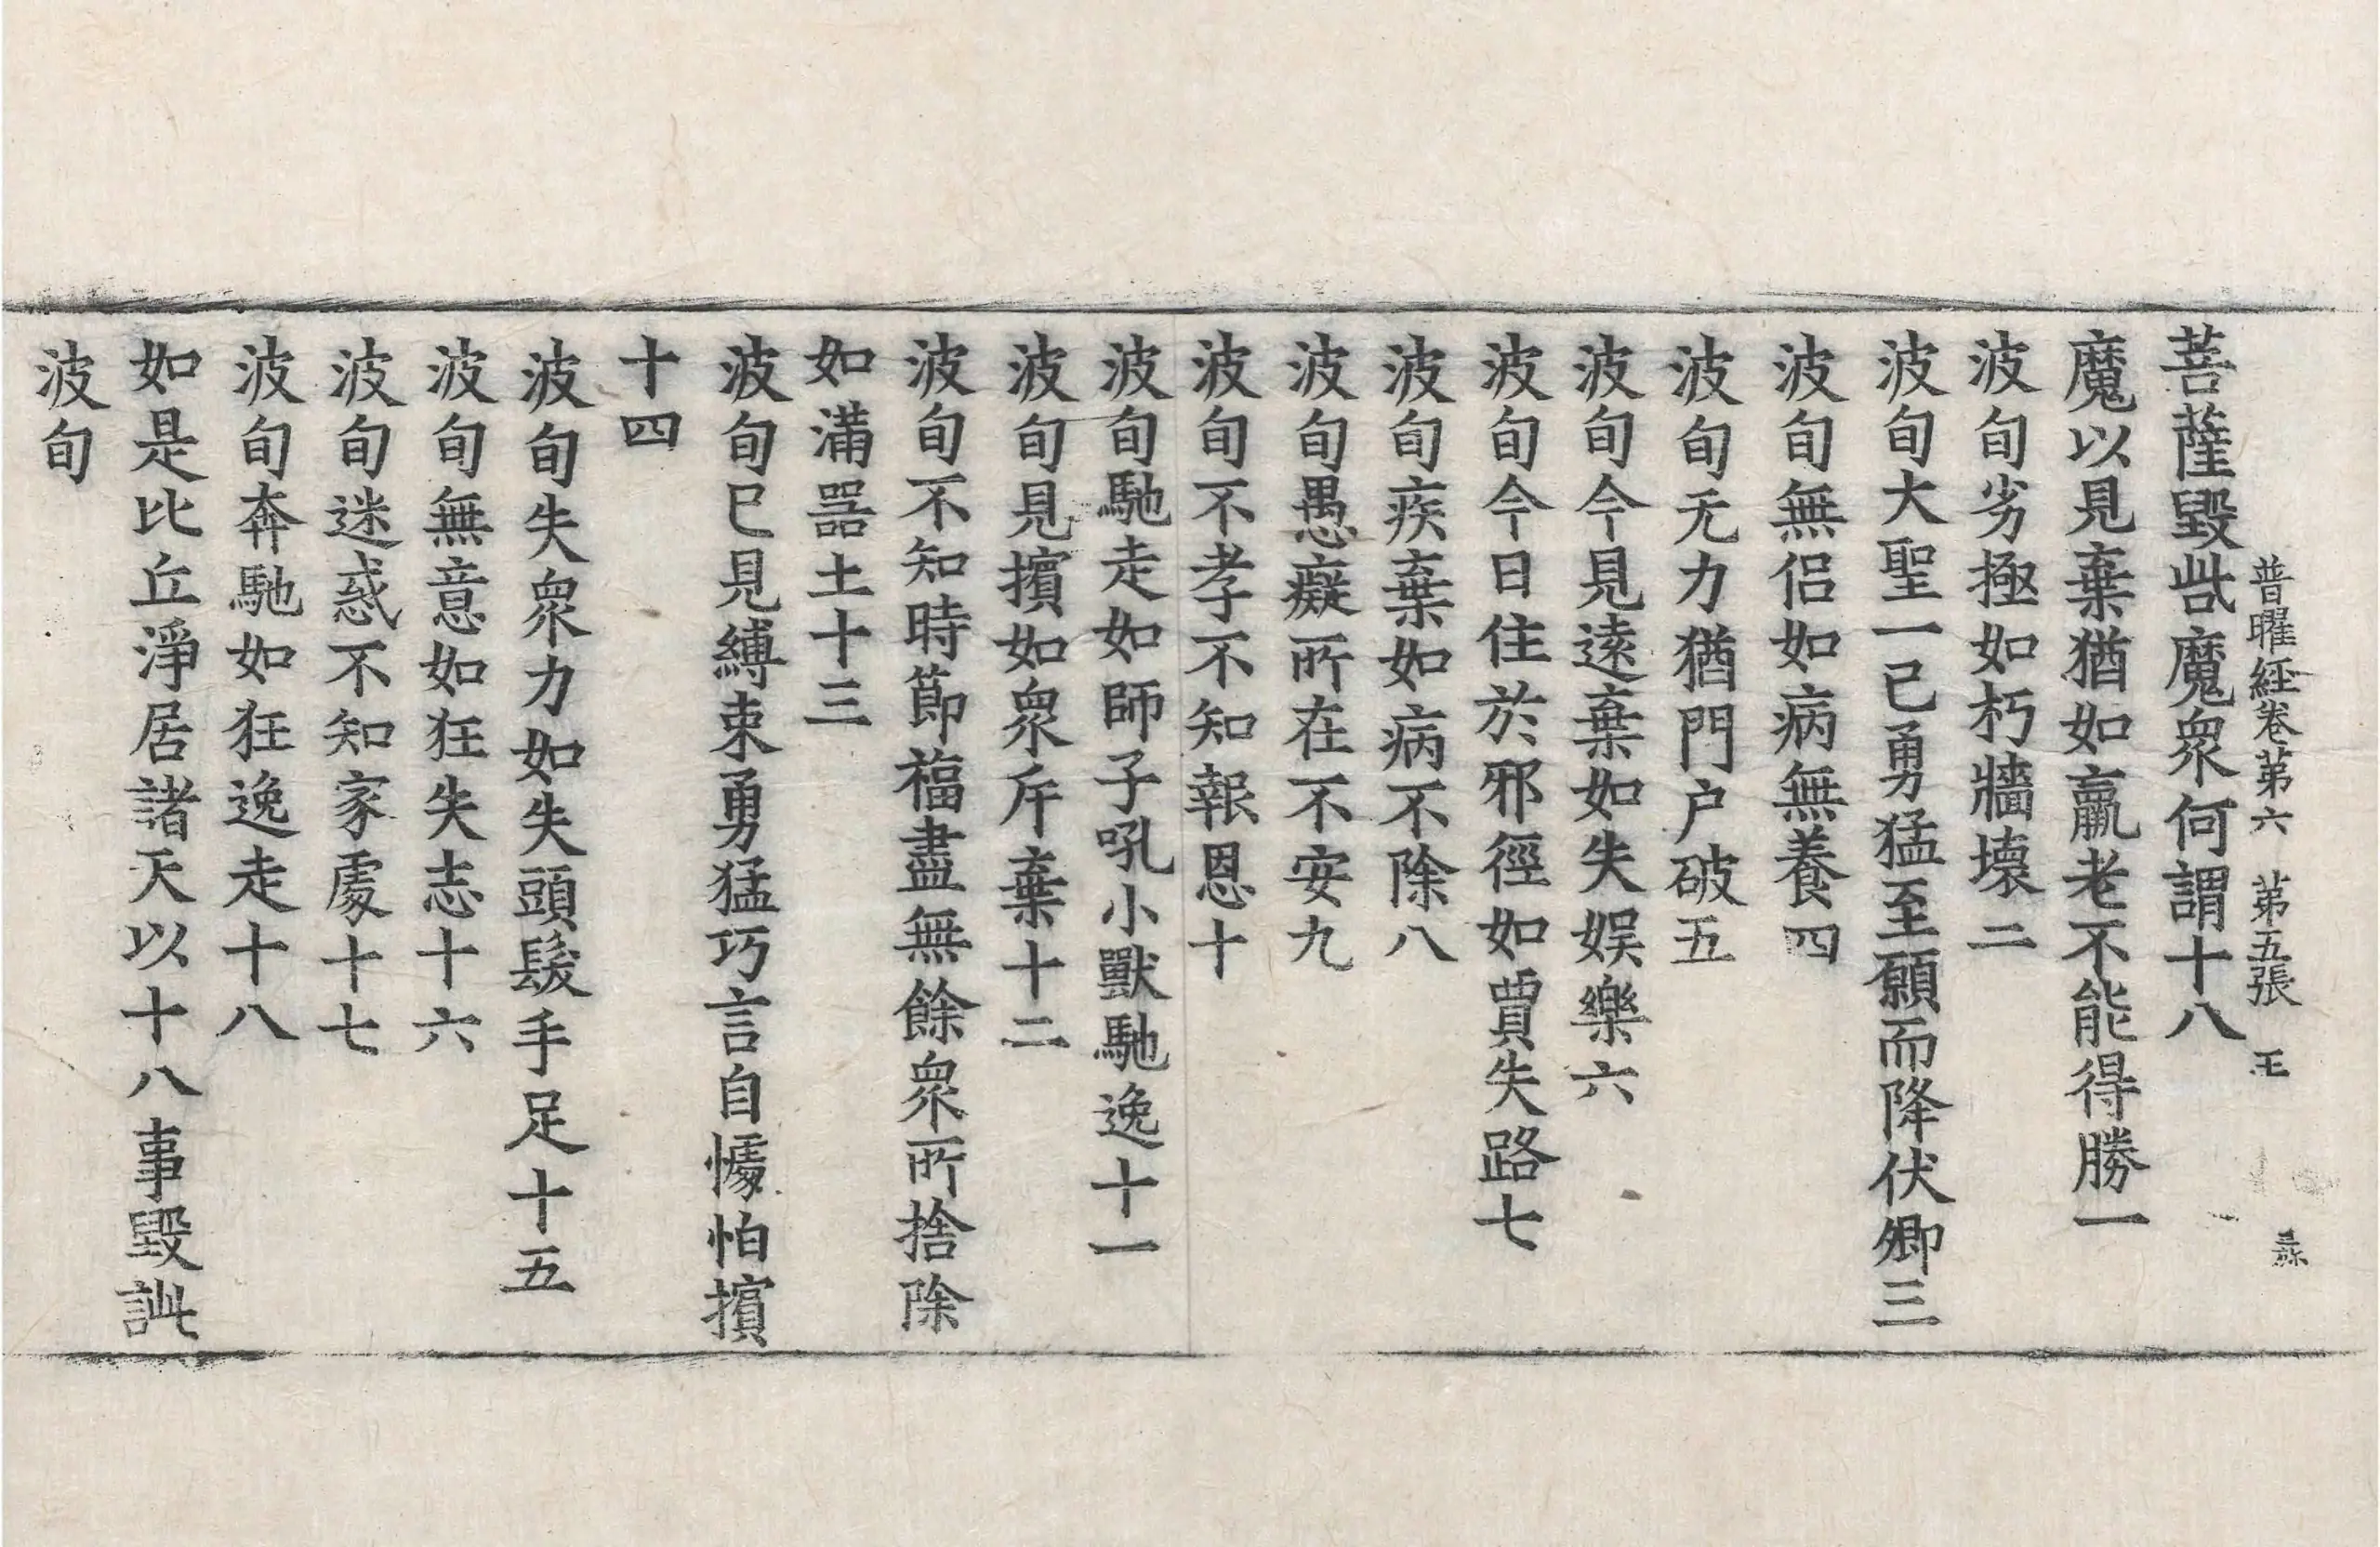 普曜経卷苐六　苐五張　王
菩薩毀呰魔衆何謂十八
魔以見棄猶如羸老不能得勝一
波旬劣極如朽牆壞二
波旬大聖一已勇猛至願而降伏卿三
波旬無侣如病無養四
波旬无力猶門户破五
波旬今見逺棄如失娛樂六
波旬今日住於邪徑如賈失路七
波旬疾棄如病不除八
波旬愚癡所在不安九
波旬不孝不知報恩十
波旬馳走如師子吼小獸馳逸十一
波旬見擯如衆斥棄十二
波旬不知時節福盡無餘衆所捨除
如滿噐土十三
波旬已見縛束勇猛巧言自懅怕擯
十四
波旬失衆力如失頭髮手足十五
波旬無意如狂失志十六
波旬迷惑不知家處十七
波旬奔馳如狂逸走十八
如是比丘淨居諸天以十八事毀訾
波旬